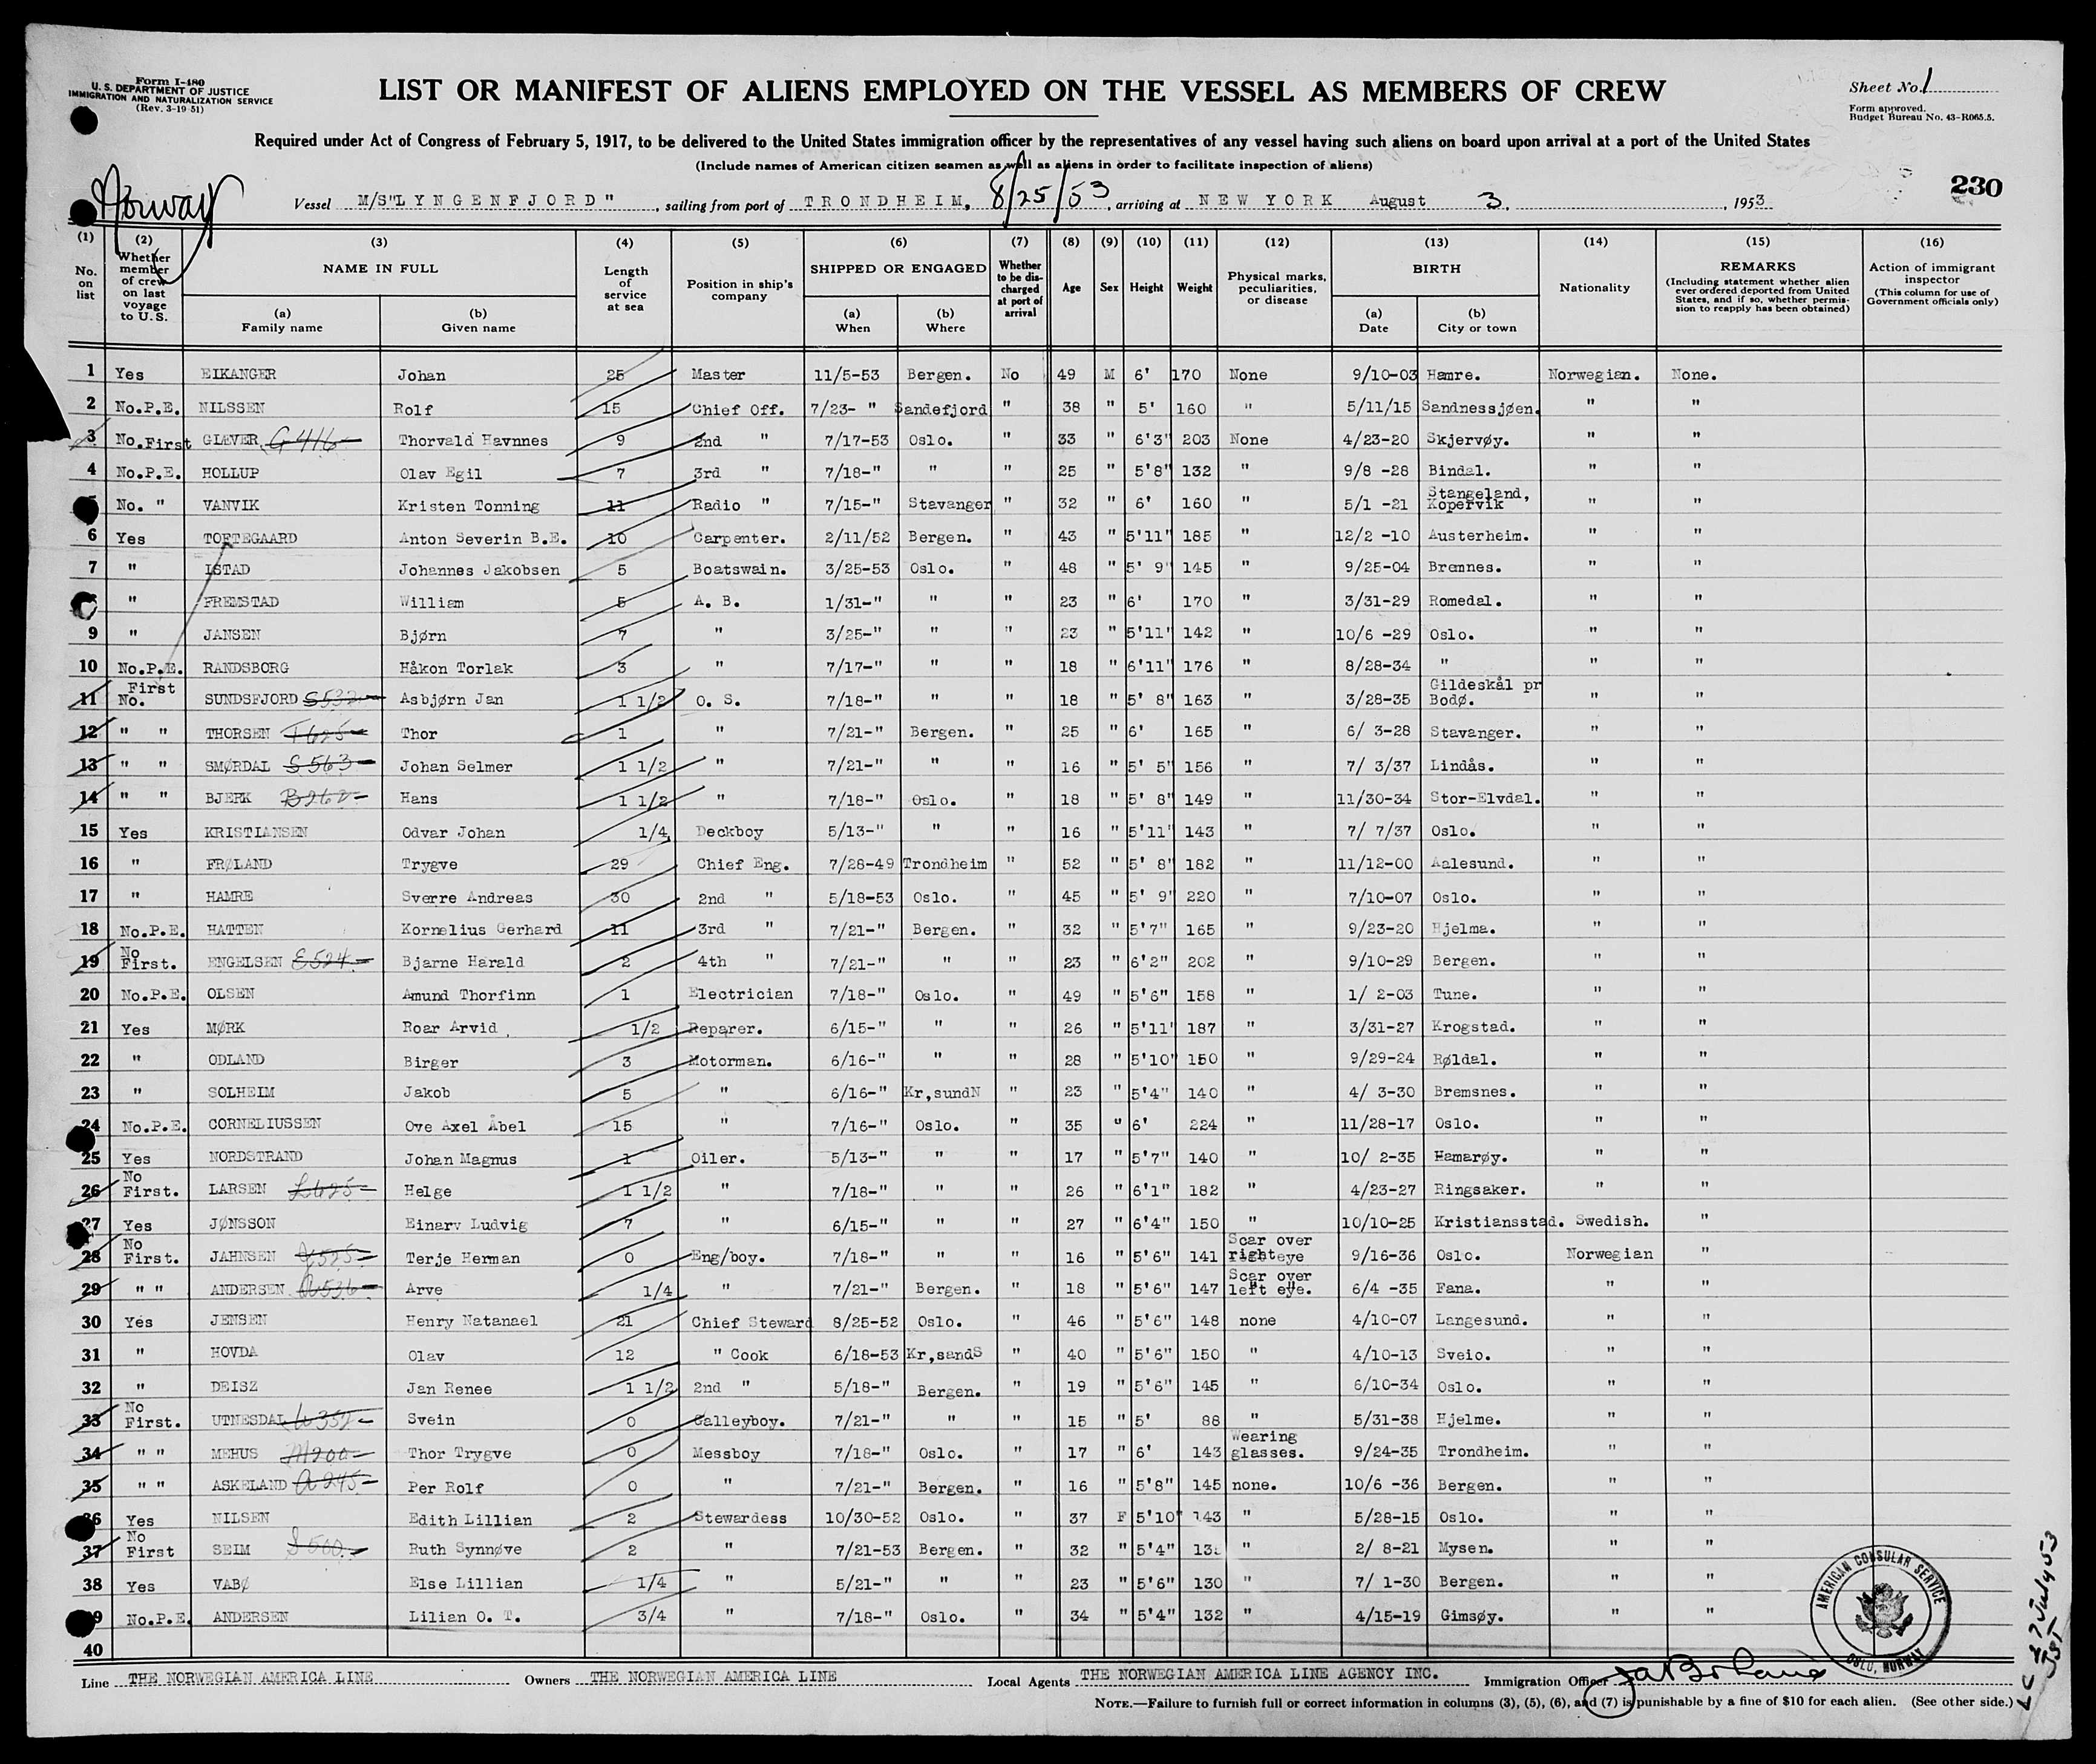 Form I-480
U. S. DEPARTMENT OF JUSTICE
IMMIGRATION AND NATURALIZATION SERVICE
(Rev. 3-19-51)
LIST OR MANIFEST OF ALIENS EMPLOYED ON THE VESSEL AS MEMBERS OF CREW
Sheet No. 1
Form approved.
Budget Bureau No. 43-R065.5.
Required under Act of Congress of February 5, 1917, to be delivered to the United States immigration officer by the representatives of any vessel having such aliens on board upon arrival at a port of the United States
(Include names of American citizen seamen as well as aliens in order to facilitate inspection of aliens)
230
Norway
Vessel M/S"LYNGENFJORD", sailing from port of TRONDHEIM, 8/25/53, arriving at NEW YORK August 3, 1953
(1) No. on list
(2) Whether member of crew on last voyage to U.S.
(3) NAME IN FULL (a) Family name (b) Given name
(4) Length of service at sea
(5) Position in ship's company
(6) SHIPPED OR ENGAGED (a) When (b) Where
(7) Whether to be discharged at port of arrival
(8) Age
(9) Sex
(10) Height
(11) Weight
(12) Physical marks, peculiarities, or disease
(13) BIRTH (a) Date (b) City or town
(14) Nationality
(15) REMARKS (Including statement whether alien ever ordered deported from United States, and if so, whether permission to reapply has been obtained)
(16) Action of immigrant inspector (This column for use of Government officials only)
1 Yes EIKANGER Johan 25 Master 11/5-53 Bergen. No 49 M 6' 170 None 9/10-03 Hamre. Norwegian. None.
2 No.P.E. NILSSEN Rolf 15 Chief Off. 7/23- " Sandefjord " 38 " 5' 160 " 5/11/15 Sandnessjøen. " "
3 No.First GLÆVER G416 Thorvald Havnnes 9 2nd " 7/17-53 Oslo. " 33 " 6'3" 203 None 4/23-20 Skjervøy. " "
4 No.P.E. HOLLUP Olav Egil 7 3rd " 7/18-" " " 25 " 5'8" 132 " 9/8 -28 Bindal. " "
5 No. " VANVIK Kristen Tonning 11 Radio " 7/15-" Stavanger " 32 " 6' 160 " 5/1 -21 Stangeland, Kopervik " "
6 Yes TOFTEGAARD Anton Severin B.E. 10 Carpenter. 2/11/52 Bergen. " 43 " 5'11" 185 " 12/2 -10 Austerheim. " "
7 " ISTAD Johannes Jakobsen 5 Boatswain. 3/25-53 Oslo. " 48 " 5' 9" 145 " 9/25-04 Bremnes. " "
8 " FREMSTAD William 5 A. B. 1/31-" " " 23 " 6' 170 " 3/31-29 Romedal. " "
9 " JANSEN Bjørn 7 " 3/25-" " " 23 " 5'11" 142 " 10/6 -29 Oslo. " "
10 No.P.E. RANDSBORG Håkon Torlak 3 " 7/17-" " " 18 " 6'11" 176 " 8/28-34 " " "
11 First No. SUNDSFJORD S532 Asbjørn Jan 1 1/2 O. S. 7/18-" " " 18 " 5' 8" 163 " 3/28-35 Gildeskål pr Bodø. " "
12 " " THORSEN T625 Thor 1 " 7/21-" Bergen. " 25 " 6' 165 " 6/ 3-28 Stavanger. " "
13 " " SMØRDAL S563 Johan Selmer 1 1/2 " 7/21-" " " 16 " 5' 5" 156 " 7/ 3/37 Lindås. " "
14 " " BJERK B262 Hans 1 1/2 " 7/18-" Oslo. " 18 " 5' 8" 149 " 11/30-34 Stor-Elvdal. " "
15 Yes KRISTIANSEN Odvar Johan 1/4 Deckboy 5/13-" " " 16 " 5'11" 143 " 7/ 7/37 Oslo. " "
16 " FRØLAND Trygve 29 Chief Eng. 7/28-49 Trondheim " 52 " 5' 8" 182 " 11/12-00 Aalesund. " "
17 " HAMRE Sverre Andreas 30 2nd " 5/18-53 Oslo. " 45 " 5' 9" 220 " 7/10-07 Oslo. " "
18 No.P.E. HATTEN Kornelius Gerhard 11 3rd " 7/21-" Bergen. " 32 " 5'7" 165 " 9/23-20 Hjelma. " "
19 No First. ENGELSEN E524 Bjarne Harald 2 4th " 7/21-" " " 23 " 6'2" 202 " 9/10-29 Bergen. " "
20 No.P.E. OLSEN Amund Thorfinn 1 Electrician 7/18-" Oslo. " 49 " 5'6" 158 " 1/ 2-03 Tune. " "
21 Yes MØRK Roar Arvid 1/2 Reparer. 6/15-" " " 26 " 5'11" 187 " 3/31-27 Krogstad. " "
22 " ODLAND Birger 3 Motorman. 6/16-" " " 28 " 5'10" 150 " 9/29-24 Røldal. " "
23 " SOLHEIM Jakob 5 " 6/16-" Kr,sundN " 23 " 5'4" 140 " 4/ 3-30 Bremsnes. " "
24 No.P.E. CORNELIUSSEN Ove Axel Åbel 15 " 7/16-" Oslo. " 35 " 6' 224 " 11/28-17 Oslo. " "
25 Yes NORDSTRAND Johan Magnus 1 Oiler. 5/13-" " " 17 " 5'7" 140 " 10/ 2-35 Hamarøy. " "
26 No First. LARSEN L625 Helge 1 1/2 " 7/18-" " " 26 " 6'1" 182 " 4/23-27 Ringsaker. " "
27 Yes JØNSSON Einarv Ludvig 7 " 6/15-" " " 27 " 6'4" 150 " 10/10-25 Kristiansstad. Swedish. "
28 No First. JAHNSEN J525 Terje Herman 0 Eng/boy. 7/18-" " " 16 " 5'6" 141 Scar over right eye 9/16-36 Oslo. Norwegian "
29 " " ANDERSEN A536 Arve 1/4 " 7/21-" Bergen. " 18 " 5'6" 147 Scar over left eye. 6/4 -35 Fana. " "
30 Yes JENSEN Henry Natanael 21 Chief Steward 8/25-52 Oslo. " 46 " 5'6" 148 none 4/10-07 Langesund. " "
31 " HOVDA Olav 12 " Cook 6/18-53 Kr,sandS " 40 " 5'6" 150 " 4/10-13 Sveio. " "
32 " DEISZ Jan Renee 1 1/2 2nd " 5/18-" Bergen. " 19 " 5'6" 145 " 6/10-34 Oslo. " "
33 No First. UTNESDAL U352 Svein 0 Galleyboy. 7/21-" " " 15 " 5' 88 " 5/31-38 Hjelme. " "
34 " " MEHUS M200 Thor Trygve 0 Messboy 7/18-" Oslo. " 17 " 6' 143 Wearing glasses. 9/24-35 Trondheim. " "
35 " " ASKELAND A245 Per Rolf 0 " 7/21-" Bergen. " 16 " 5'8" 145 none. 10/6 -36 Bergen. " "
36 Yes NILSEN Edith Lillian 2 Stewardess 10/30-52 Oslo. " 37 F 5'10" 143 " 5/28-15 Oslo. " "
37 No First SEIM S500 Ruth Synnøve 2 " 7/21-53 Bergen. " 32 " 5'4" " 2/ 8-21 Mysen. " "
38 Yes VABØ Else Lillian 1/4 " 5/21-" " " 23 " 5'6" 130 " 7/ 1-30 Bergen. " "
39 No.P.E. ANDERSEN Lilian O. T. 3/4 " 7/18-" Oslo. " 34 " 5'4" 132 " 4/15-19 Gimsøy. " "
40
AMERICAN CONSULAR SERVICE
OSLO, NORWAY
27 July 53
Line THE NORWEGIAN AMERICA LINE Owners THE NORWEGIAN AMERICA LINE Local Agents THE NORWEGIAN AMERICA LINE AGENCY INC. Immigration Officer
NOTE.—Failure to furnish full or correct information in columns (3), (5), (6), and (7) is punishable by a fine of $10 for each alien. (See other side.)